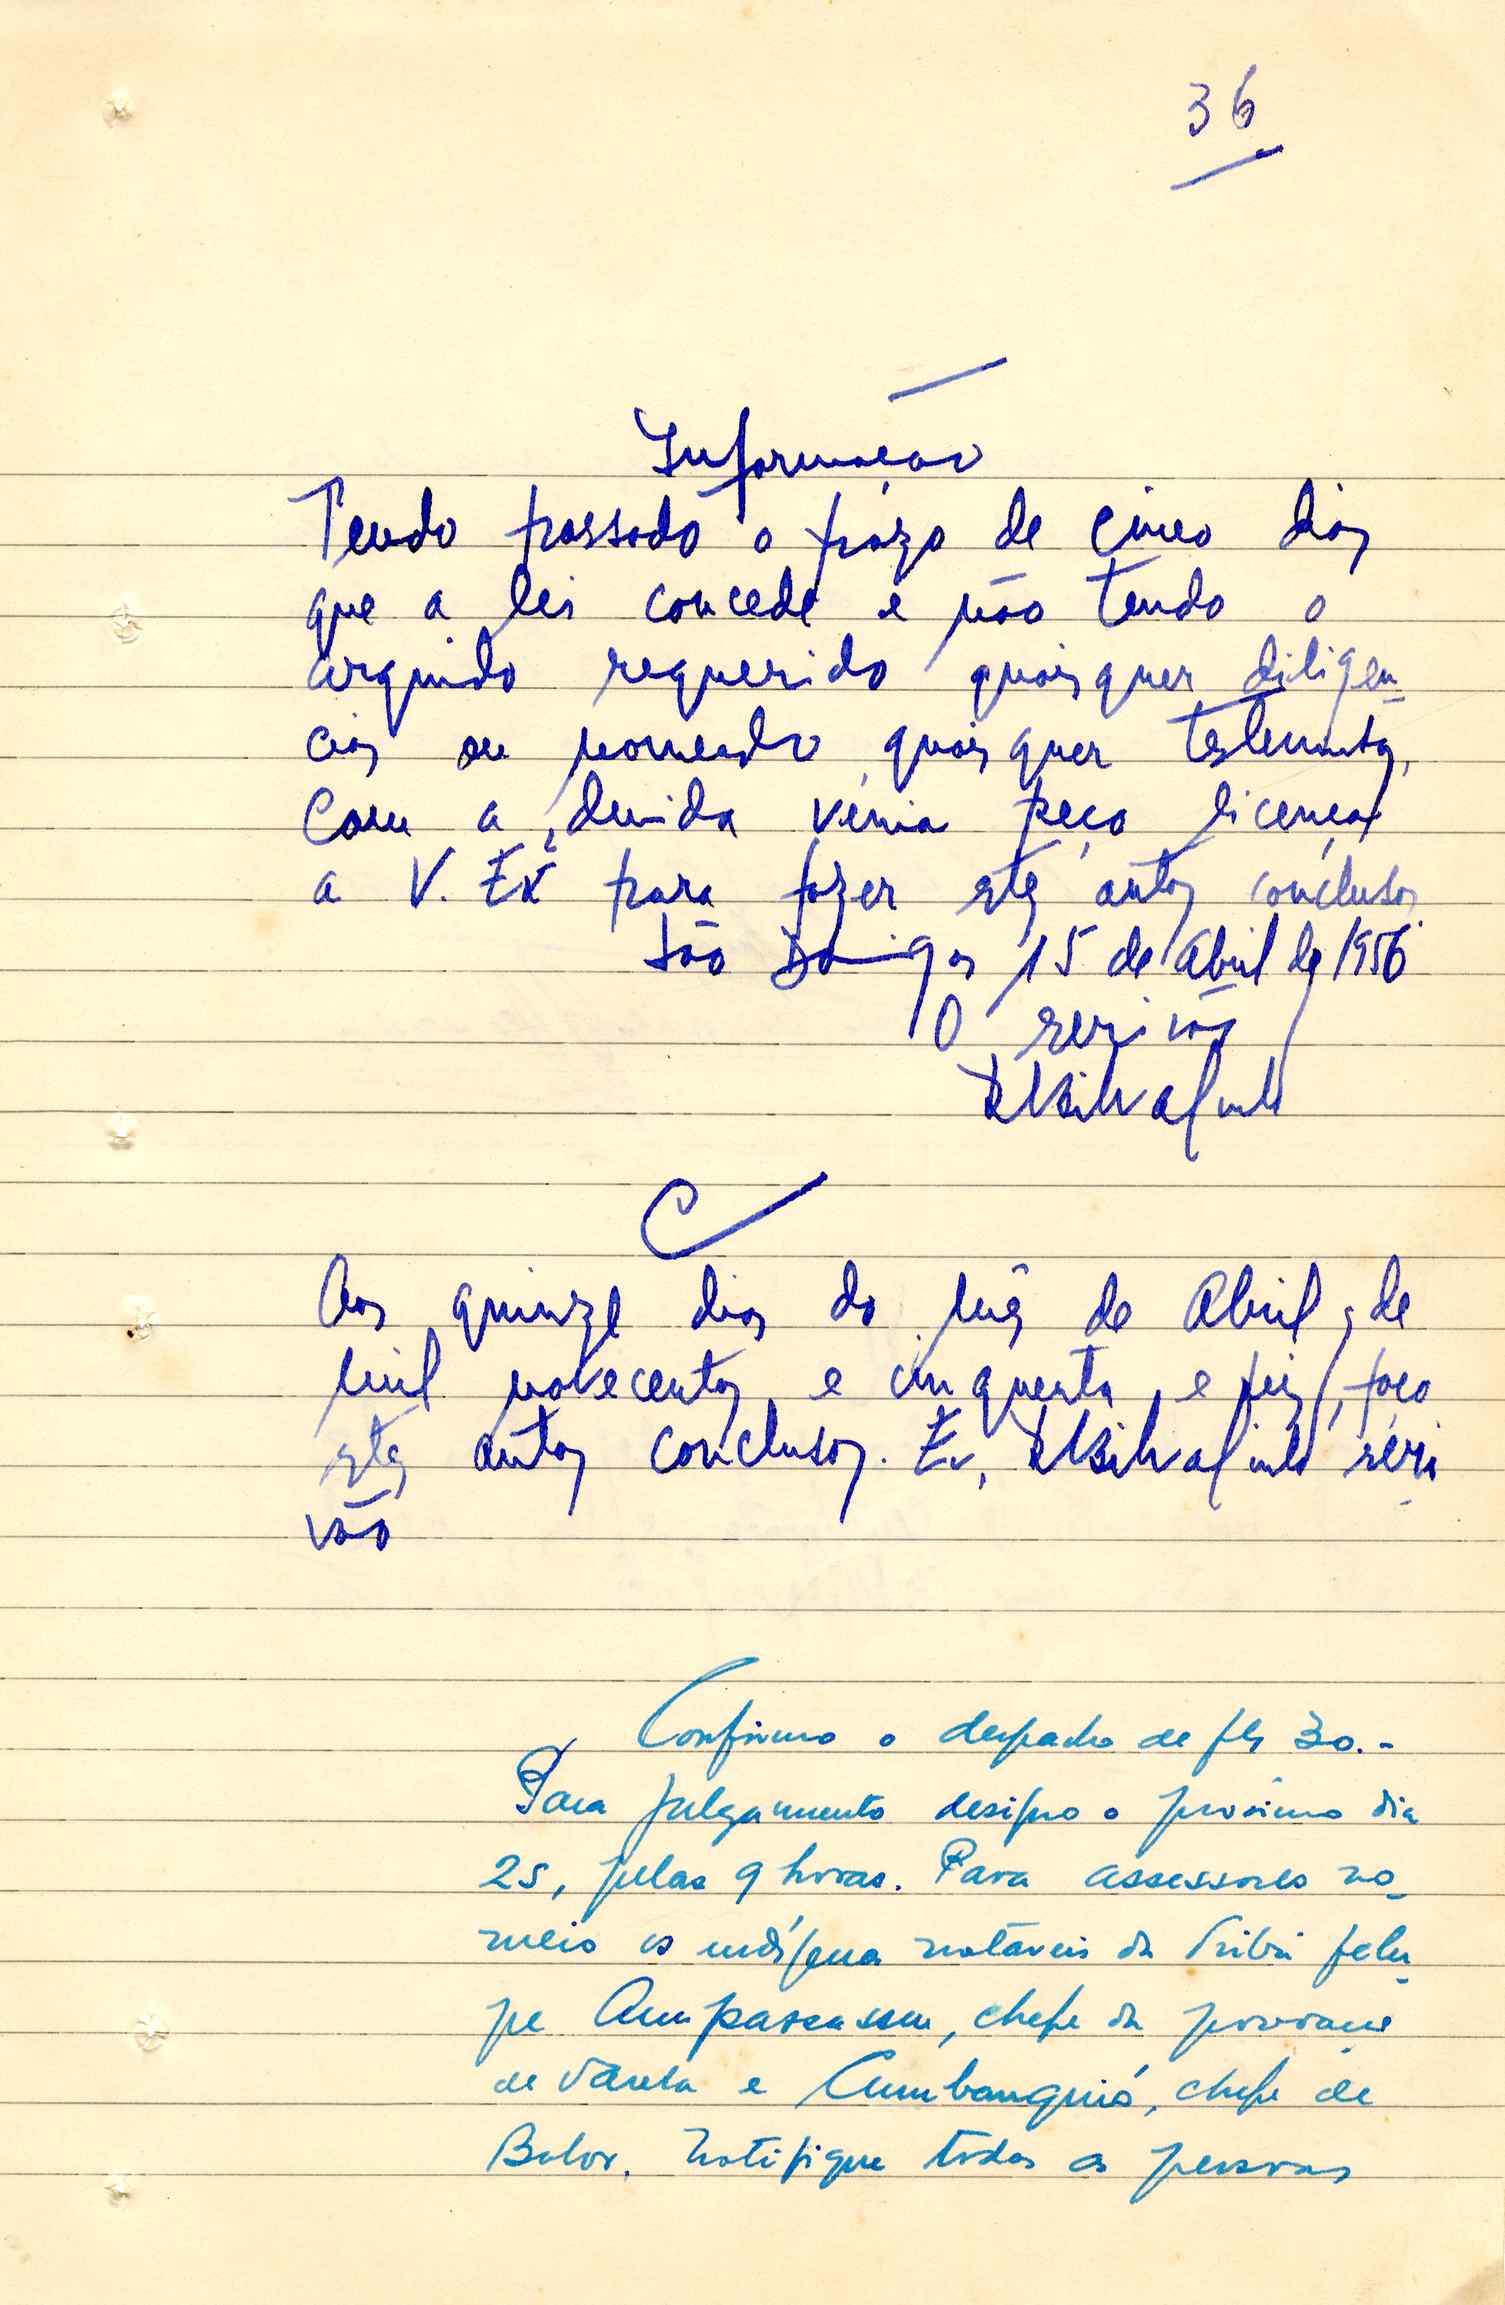 36
Informação
Tendo passado o prazo de cinco dias
que a lei concede e não tendo o
arguido requerido quaisquer diligen-
cias ou nomeado quaisquer testemunhas,
Com a devida vénia peço licença
a V. Exª para fazer estes autos conclusos
São Domingos 15 de Abril de 1956
O escrivão
C
Aos quinze dias do mês de Abril, de
mil novecentos e cinquenta e seis, faço
estes autos conclusos. Eu, escri
vão
Confirmo o despacho de fls 30.-
Para julgamento designo o próximo dia
25, pelas 9 horas. Para assessores no-
meio os indígenas notáveis da tribu felu-
pe, chefe da povoação
de Varela e Cumbanquió, chefe de
Bolor. Notifique todas as pessoas